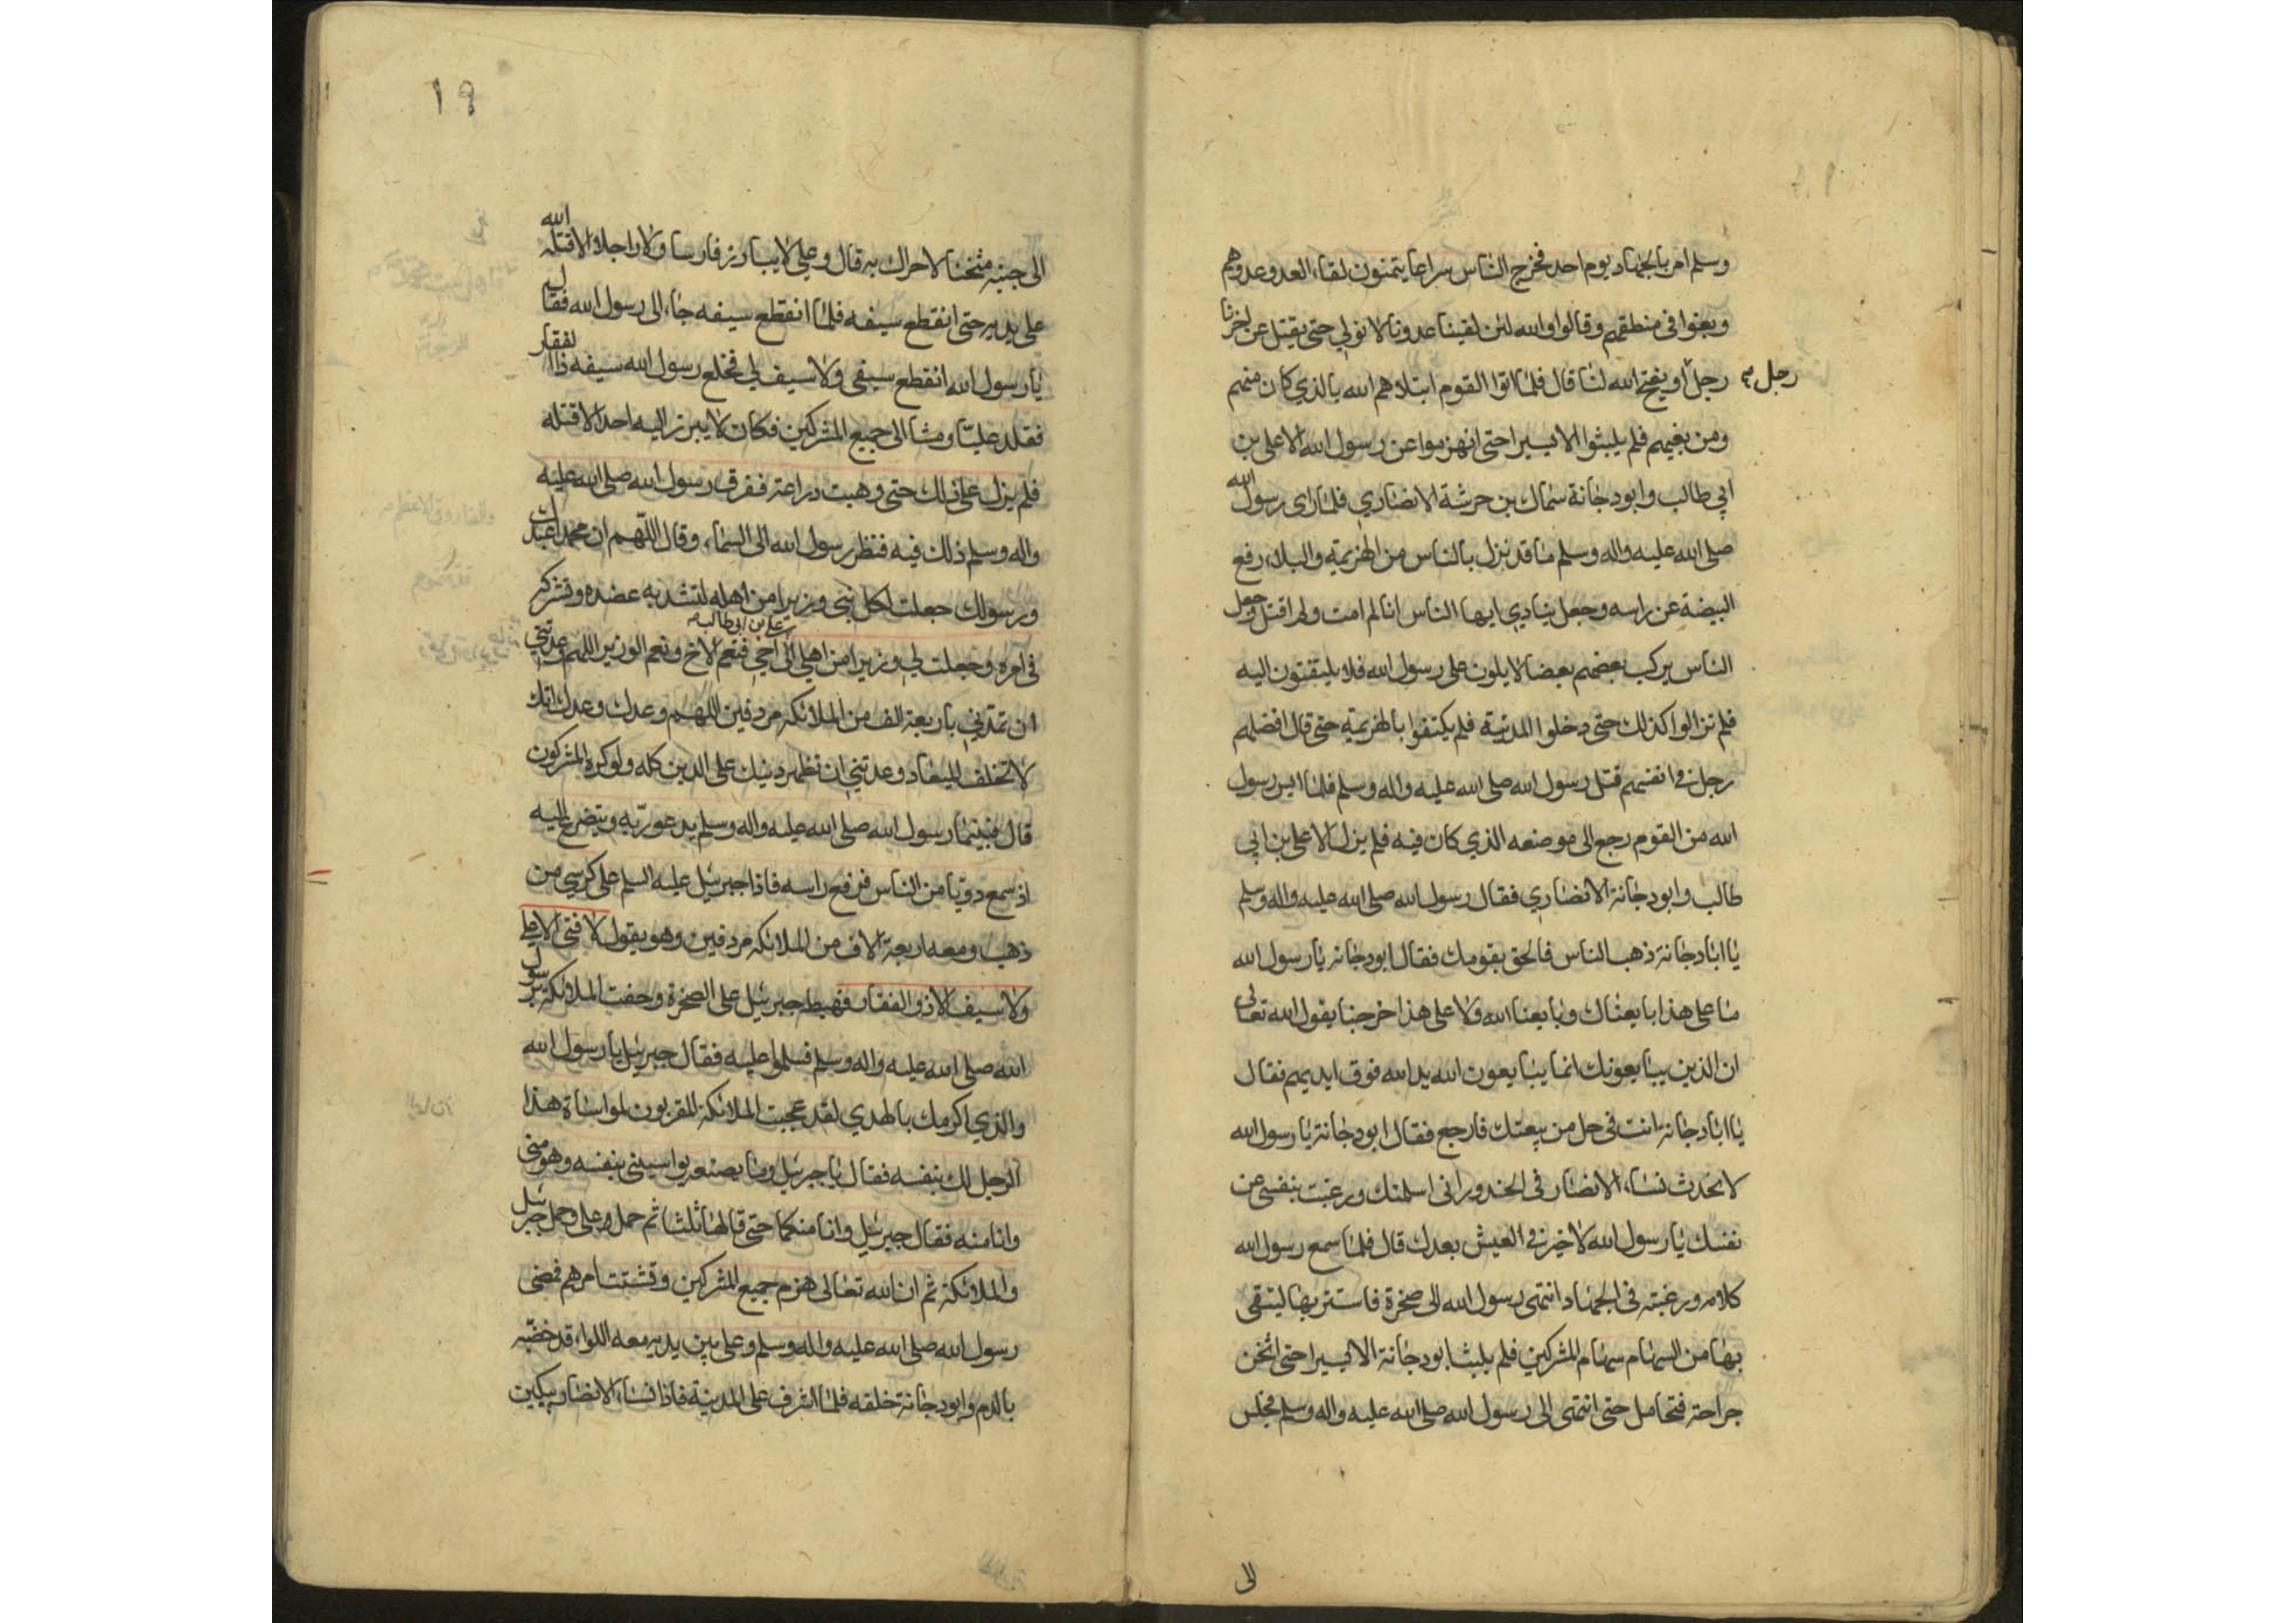 وسلم امر بالجهاد يوم احد فخرج الناس سراعا يتمنون لقاء العدو وعدوهم
وبغوا في منطقهم وقالوا والله لئن لقينا عدونا لا نولي حتى يقتل عن اخرنا
رجل او يفتح الله لنا قال فلما اتوا القوم ابتلاهم الله بالذي كان منهم
رجل
ومن بغيهم فلم يلبثوا الا يسيرا حتى انهزموا عن رسول الله الا علي بن
ابي طالب وابو دجانة سماك بن حرشة الانصاري فلما راى رسول الله
صلى الله عليه واله وسلم ما قد نزل بالناس من الهزيمة والبلاء رفع
البيضة عن راسه وجعل ينادي ايها الناس انا لم امت ولم اقتل وجعل
الناس يركب بعضهم بعضا لا يلون على رسول الله فلا يلتفتون اليه
فلم تزالوا كذلك حتى دخلوا المدينة فلم يكتفوا بالهزيمة حتى قال افضلهم
رجل في انفسهم قتل رسول الله صلى الله عليه واله وسلم فلما ايس رسول
الله من القوم رجع الى موضعه الذي كان فيه فلم يزل الا علي بن ابي
طالب وابو دجانة الانصاري فقال رسول الله صلى الله عليه واله وسلم
يا ابا دجانة ذهب الناس فالحق بقومك فقال ابو دجانه يا رسول الله
ما على هذا بايعناك وبايعنا الله ولا على هذا خرجنا يقول الله تعالى
ان الذين يبايعونك انما يبايعون الله يد الله فوق ايديهم فقال
يا ابا دجانه انت في حل من بيعتك فارجع فقال ابو دجانة يا رسول الله
لا تحدث نساء الانصار في الخدور اني اسلمتك ورغبت بنفسي عن
نفسك يا رسول الله لا خير في العيش بعدك قال فلما سمع رسول الله
كلامه ورغبته في الجهاد انتهى رسول الله الى صخرة فاستتر بها ليتقي
بها من السهام سهام المشركين فلم يلبث ابو دجانة الا يسيرا حتى اثخن
جراحة فتحامل حتى انتهى الى رسول الله صلى الله عليه واله وسلم فجلس
الى
١٩
الى جنبه مثخنا لا حراك به قال وعلي لا يبارز فارسا ولا راجلا الا قتله الله
على يديه حتى انقطع سيفه فلما انقطع سيفه جاء الى رسول الله فقال
يا رسول الله انقطع سيفي ولا سيف لي فخلع رسول الله سيفه ذا الفقار
فقلد عليا ومشا الى جميع المشركين فكان لا يبرز اليه احد الا قتله
فلم يزل على ذلك حتى وهبت دراعته ففرق رسول الله صلى الله عليه
واله وسلم ذلك فيه فنظر رسول الله الى السماء وقال اللهم ان محمدا عبدك
ورسولك جعلت لكل نبي وزيرا من اهله لتشد به عضده وتشركه
علي بن ابي طالب
في امره وجعلت لي وزيرا من اهلي اخي فنعم الاخ ونعم الوزير اللهم وعدتني
ان تمدني باربعة الف من الملائكه مردفين اللهم وعدك وعدك انك
لا تخلف الميعاد وعدتني ان تظهر دينك على الدين كله ولو كره المشركون
قال فبينما رسول الله صلى الله عليه واله وسلم يدعو ربه ويتضرع اليه
اذ سمع دويا من الناس فرفع راسه فاذا جبرئيل عليه السلم على كرسي من
ذهب ومعه اربعة الاف من الملائكه مردفين وهو يقول لا فتى الا علي
ولا سيف الا ذو الفقار فهبط جبرئيل على الصخرة وحفت الملائكة برسول
الله صلى الله عليه واله وسلم فسلموا عليه فقال جبرئيل يا رسول الله
والذي اكرمك بالهدي لقد عجبت الملائكة المقربون لمواساة هذا
الرجل لك بنفسه فقال يا جبرئيل وما يمنعه يواسيني بنفسه وهو مني
وانا منه فقال جبرئيل وانا منكما حتى قالها ثلثا ثم حمل علي وحمل جبرئيل
والملائكة ثم ان الله تعالى هزم جميع المشركين وتشتت امرهم فمضى
رسول الله صلى الله عليه واله وسلم وعلي بين يديه معه اللواء قد خضبه
بالدم وابو دجانة خلفه فلما اشرف على المدينة فاذا نساء الانصار يبكين